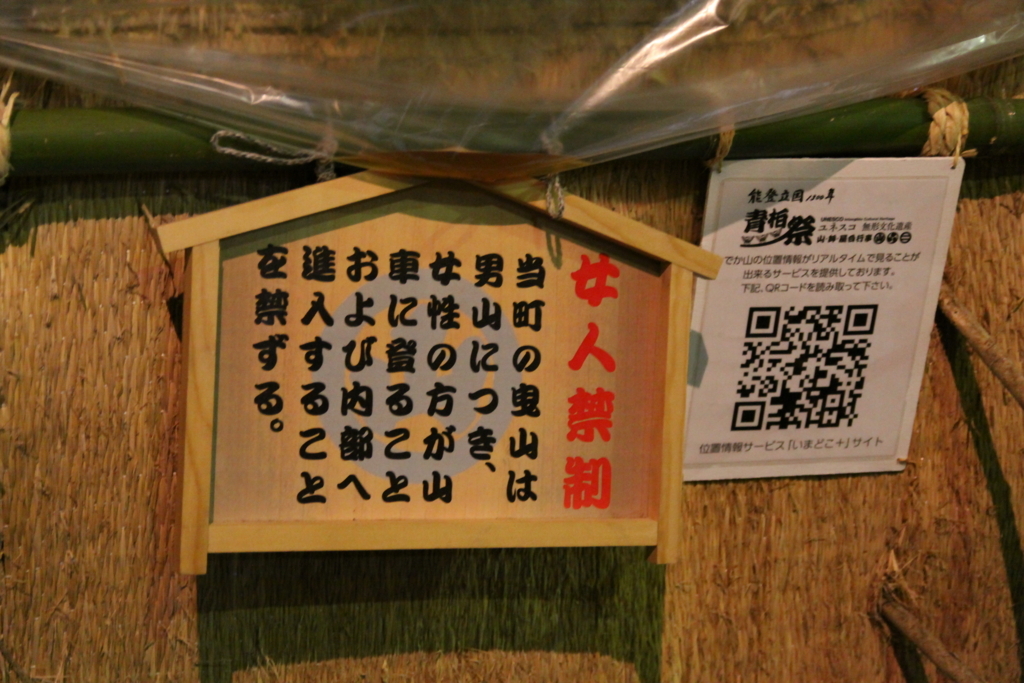 女人禁制
当町の曳山は
男山につき、
女性の方が山
車に登ること
および内部へ
進入すること
を禁ずる。
能登立国1300年
青柏祭
UNESCO Intangible Cultural Heritage
ユネスコ 無形文化遺産
山・鉾・屋台行事
でか山の位置情報がリアルタイムで見ることが
出来るサービスを提供しております。
下記、QRコードを読み取って下さい。
位置情報サービス「いまどこ+」サイト